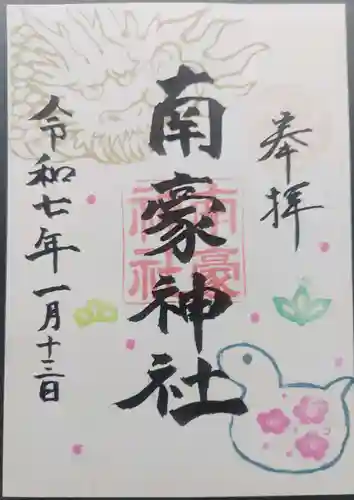 奉拝
南豪神社
南豪
神社
令和七年一月十三日